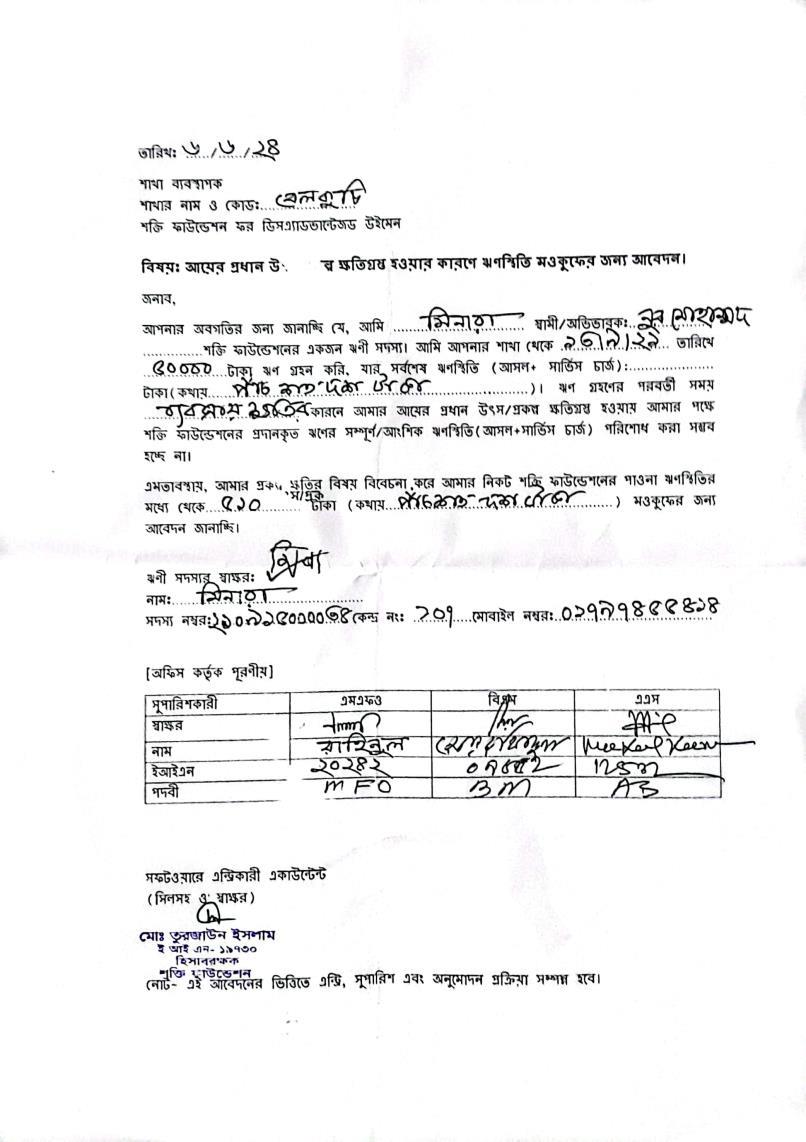 তারিখ: ৬/৬/২৪
শাখা ব্যবস্থাপক
শাখার নাম ও কোড: বেলকুচি
শক্তি ফাউন্ডেশন ফর ডিসএ্যাডভান্টেজড উইমেন
বিষয়: আয়ের প্রধান উ র ক্ষতিগ্রস্ত হওয়ার কারণে ঋণস্থিতি মওকুফের জন্য আবেদন।
জনাব,
আপনার অবগতির জন্য জানাচ্ছি যে, আমি মিনারা স্বামী/অভিভাবক: নুর মোহাম্মদ
শক্তি ফাউন্ডেশনের একজন ঋণী সদস্য। আমি আপনার শাখা থেকে তারিখে
৫০০০০ টাকা ঋণ গ্রহন করি, যার সর্বশেষ ঋণস্থিতি (আসল+ সার্ভিস চার্জ):
টাকা (কথায় পাঁচ শত দশ টাকা )। ঋণ গ্রহণের পরবর্তী সময়
ব্যবসায় ক্ষতির কারনে আমার আয়ের প্রধান উৎস/প্রকল্প ক্ষতিগ্রস্ত হওয়ায় আমার পক্ষে
শক্তি ফাউন্ডেশনের প্রদানকৃত ঋণের সম্পূর্ণ/আংশিক ঋণস্থিতি (আসল+সার্ভিস চার্জ) পরিশোধ করা সম্ভব
হচ্ছে না।
এমতাবস্থায়, আমার ক্ষতির বিষয় বিবেচনা করে আমার নিকট শক্তি ফাউন্ডেশনের পাওনা ঋণস্থিতির
মধ্যে থেকে ৫১০ টাকা (কথায় পাঁচ শত দশ টাকা ) মওকুফের জন্য
আবেদন জানাচ্ছি।
ঋণী সদস্যর স্বাক্ষর:
নাম: মিনারা
সদস্য নম্বর: কেন্দ্র নং: ২০১ মোবাইল নম্বর:
[অফিস কর্তৃক পূরণীয়]
সুপারিশকারী এমএফও বিএম এএস
স্বাক্ষর
নাম রাহিনুল
ইআইএন ২০২৪২
পদবী MFO BM AS
সফটওয়ারে এন্ট্রিকারী একাউন্টেন্ট
(সিলসহ ও স্বাক্ষর)
মোঃ তুরজাউন ইসলাম
ই আই এন- ১৯৭৩০
হিসাবরক্ষক
শক্তি ফাউন্ডেশন
নোট- এই আবেদনের ভিত্তিতে এন্ট্রি, সুপারিশ এবং অনুমোদন প্রক্রিয়া সম্পন্ন হবে।